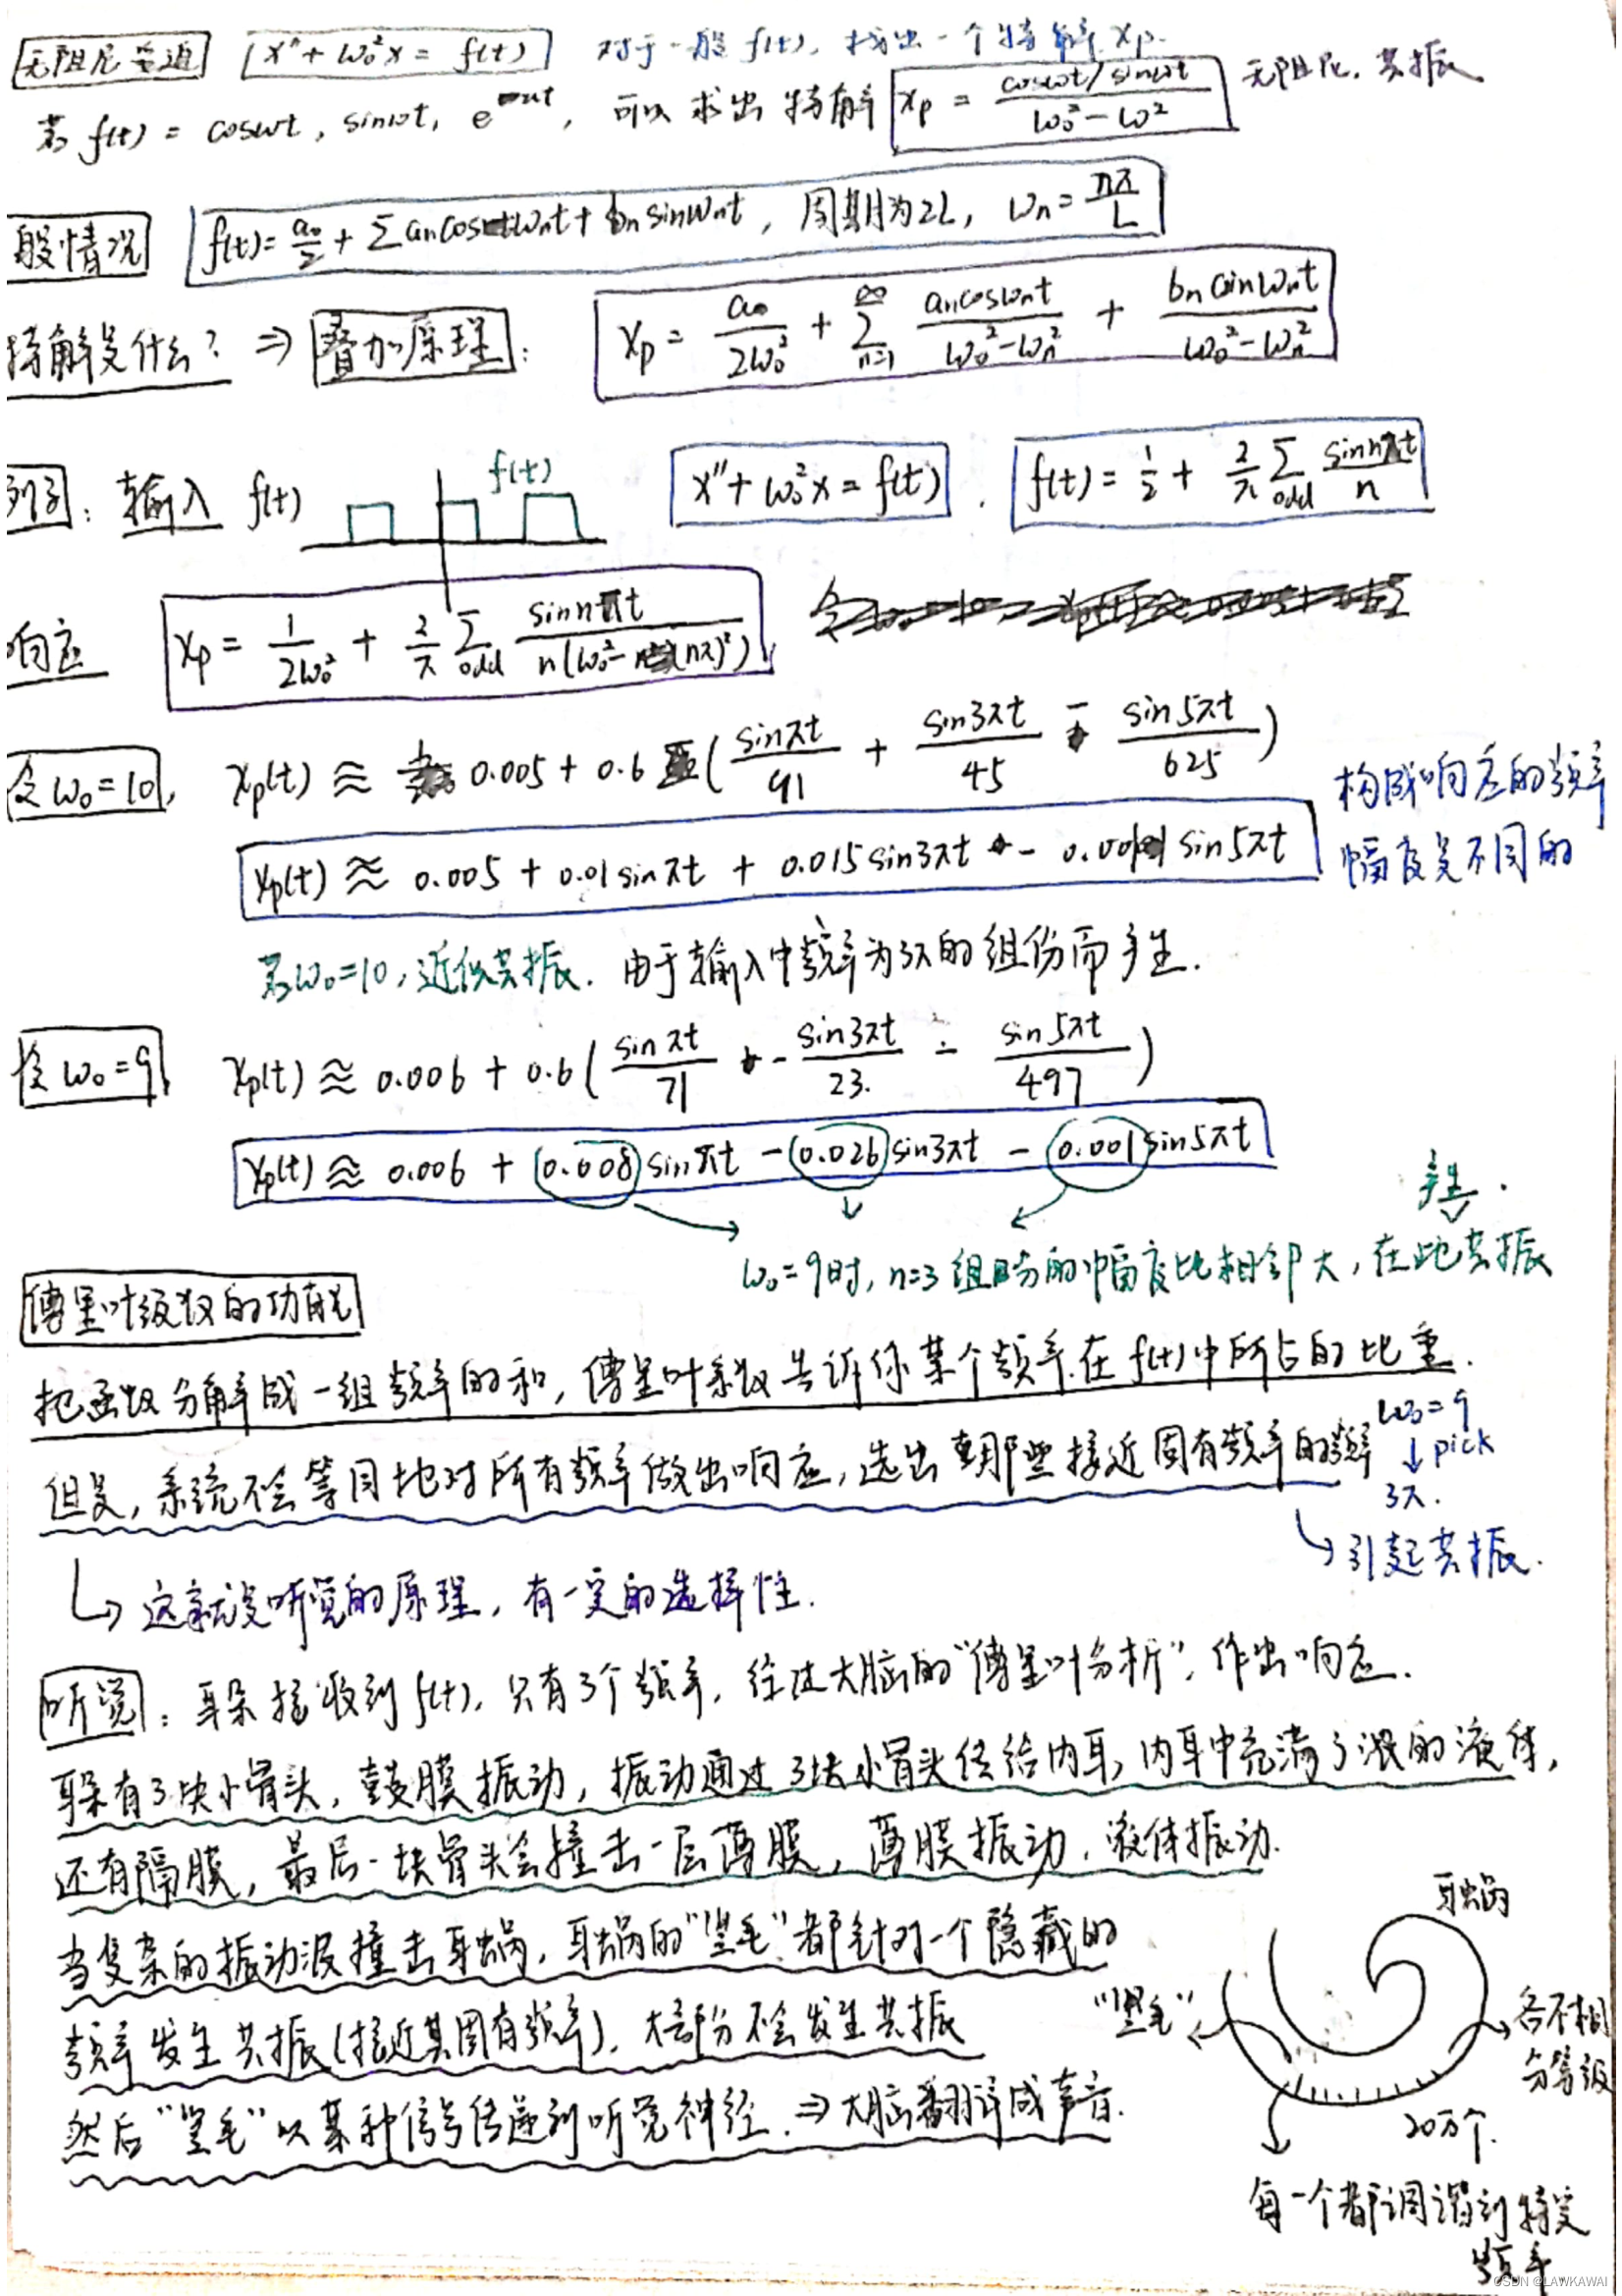 无阻尼受迫 x″ + ω₀²x = f(t) 对于一般 f(t), 找出一个特解 xp.
若 f(t) = cosωt, sinωt, e , 可以求出特解 xp = (cosωt / sinωt)/(ω₀² − ω²) 无阻尼. 共振
般情况 f(t) = a₀/2 + Σ aₙcosωₙt + bₙ sinωₙt, 周期为2L, ωₙ = nπ/L
特解是什么? ⇒ 叠加原理: xp = a₀/(2ω₀²) + Σ(n=1→∞) aₙcosωₙt/(ω₀²−ωₙ²) + bₙ sinωₙt/(ω₀²−ωₙ²)
例子: 输入 f(t) f(t) x″ + ω₀²x = f(t). f(t) = 1/2 + 2/π Σodd sin nπt/n
响应 xp = 1/(2ω₀²) + 2/π Σodd sin nπt/(n(ω₀² − (nπ)²))
令 ω₀=10, xp(t) ≈ 0.005 + 0.6 ( sinπt/91 + sin3πt/45 − sin5πt/625 )
xp(t) ≈ 0.005 + 0.01 sinπt + 0.015 sin3πt − 0.001 sin5πt
构成响应的频率
幅度是不同的
若ω₀=10, 近似共振. 由于输入中频率为3π的组份而产生.
设 ω₀=9 xp(t) ≈ 0.006 + 0.6 ( sinπt/71 − sin3πt/23. − sin5πt/497 )
xp(t) ≈ 0.006 + 0.008 sinπt − 0.026 sin3πt − 0.001 sin5πt
产生.
ω₀=9时, n=3 组份的幅度比相邻大, 在此共振
傅里叶级数的功能
把函数分解成一组频率的和, 傅里叶系数告诉你某个频率在 f(t) 中所占的比重.
但是, 系统不会等同地对所有频率做出响应, 选出那些接近固有频率的频率
ω₀=9
↓ pick
3π.
↳ 引起共振.
↳ 这就是听觉的原理, 有一定的选择性.
听觉: 耳朵接收到 f(t), 只有3个频率, 经过大脑的“傅里叶分析”, 作出响应.
耳朵有3块小骨头, 鼓膜振动, 振动通过3块小骨头传给内耳, 内耳中充满了浓的液体,
还有隔膜, 最后一块骨头会撞击一层薄膜, 薄膜振动, 液体振动.
当复杂的振动波撞击耳蜗, 耳蜗的“竖毛”都针对一个隐藏的
频率发生共振(接近其固有频率), 大部分不会发生共振
然后“竖毛”以某种信号传递到听觉神经. ⇒ 大脑翻译成声音.
耳蜗
“竖毛”
各不相同
分等级
20万个.
每一个都调谐到特定
频率
CSDN @LAWKAWAI